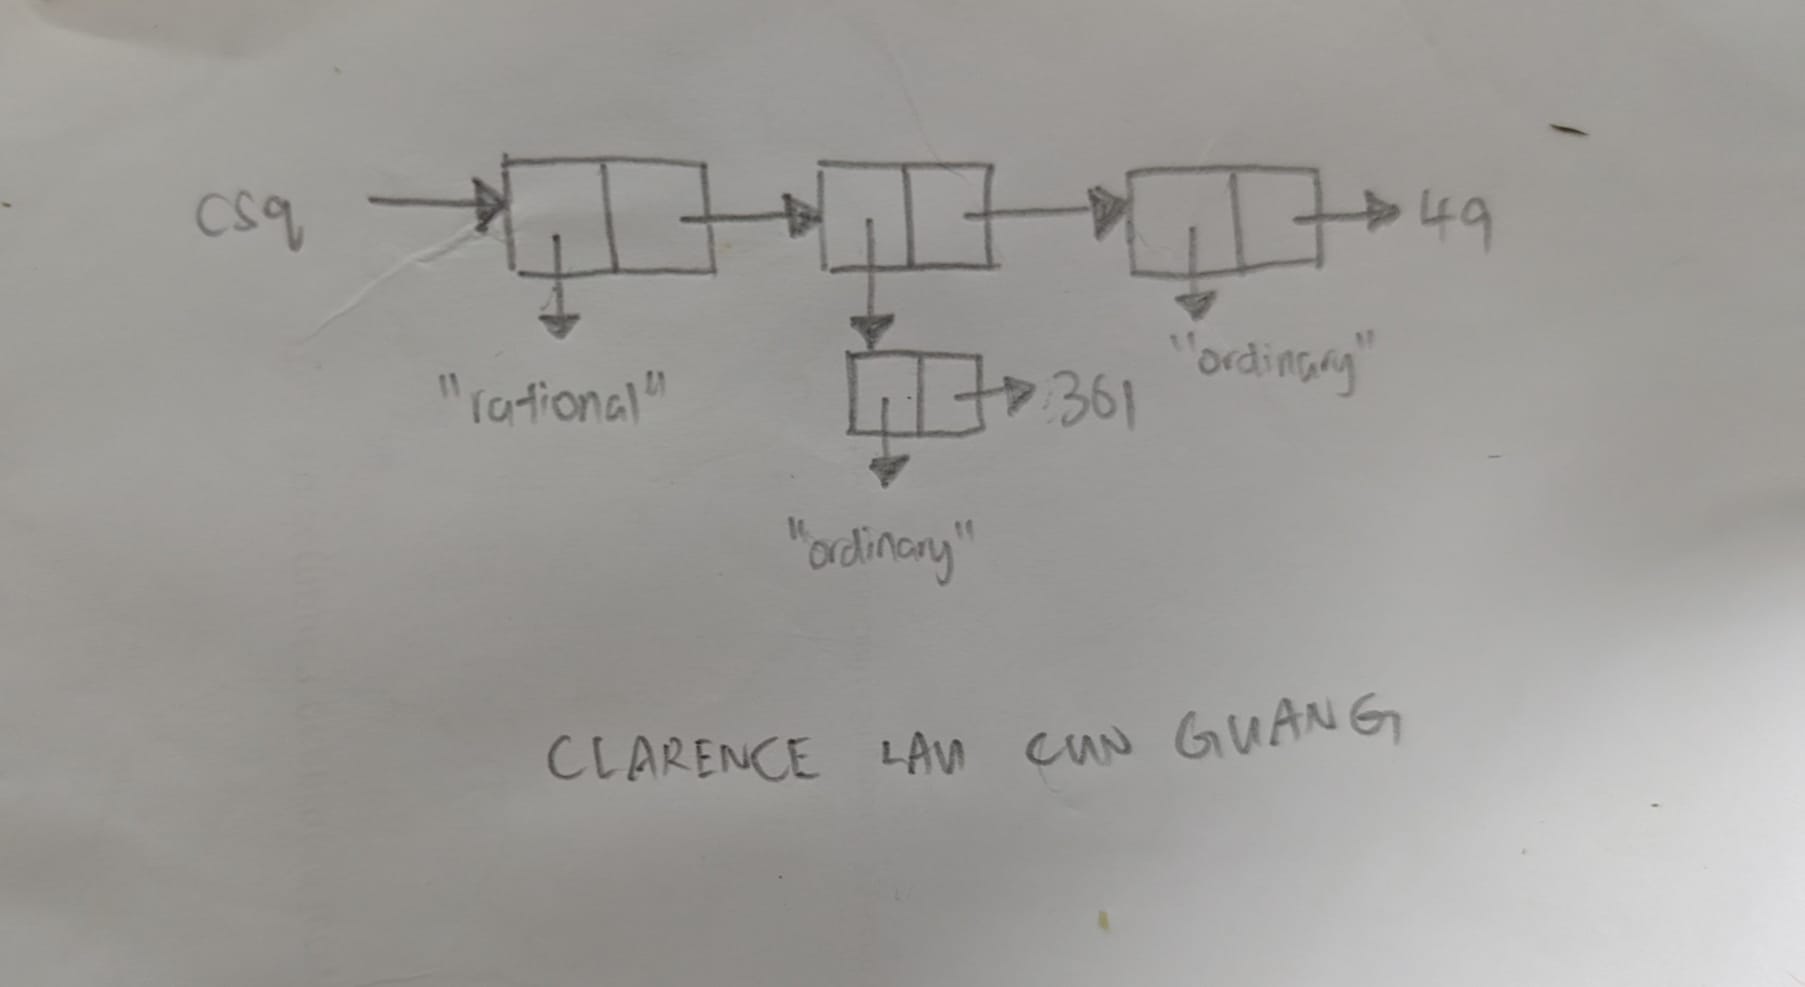 csq 49
"rational" 361 "ordinary"
"ordinary"
CLARENCE LAU CUN GUANG